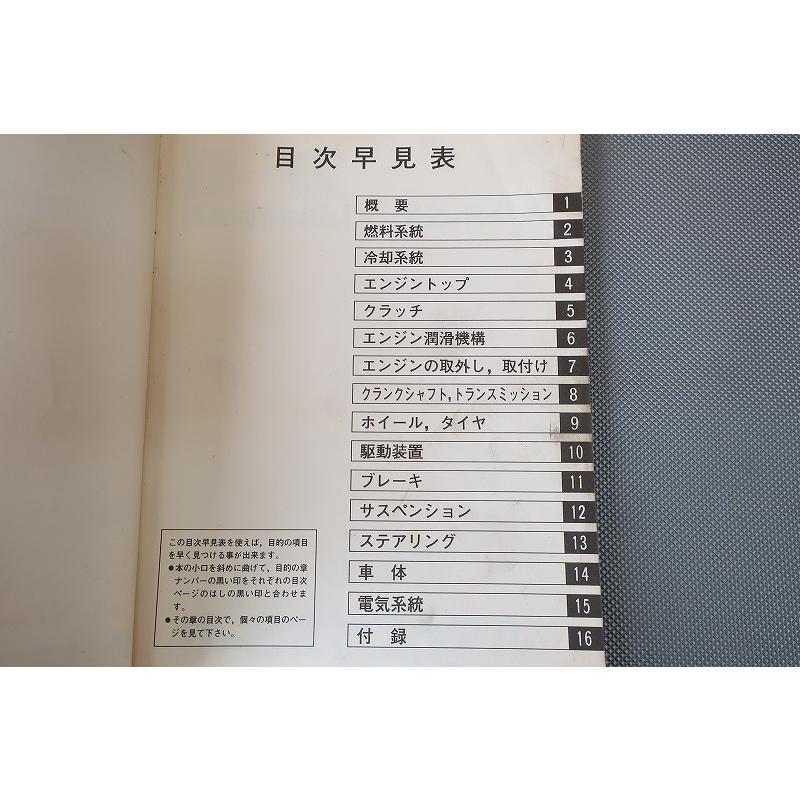 目次早見表
概 要 1
燃料系統 2
冷却系統 3
エンジントップ 4
クラッチ 5
エンジン潤滑機構 6
エンジンの取外し，取付け 7
クランクシャフト，トランスミッション 8
ホイール，タイヤ 9
駆動装置 10
ブレーキ 11
サスペンション 12
ステアリング 13
車 体 14
電気系統 15
付 録 16
この目次早見表を使えば，目的の項目
を早く見つける事が出来ます。
●本の小口を斜めに曲げて，目的の章
ナンバーの黒い印をそれぞれの目次
ページのはしの黒い印と合わせま
す。
●その章の目次で，個々の項目のペー
ジを見て下さい。